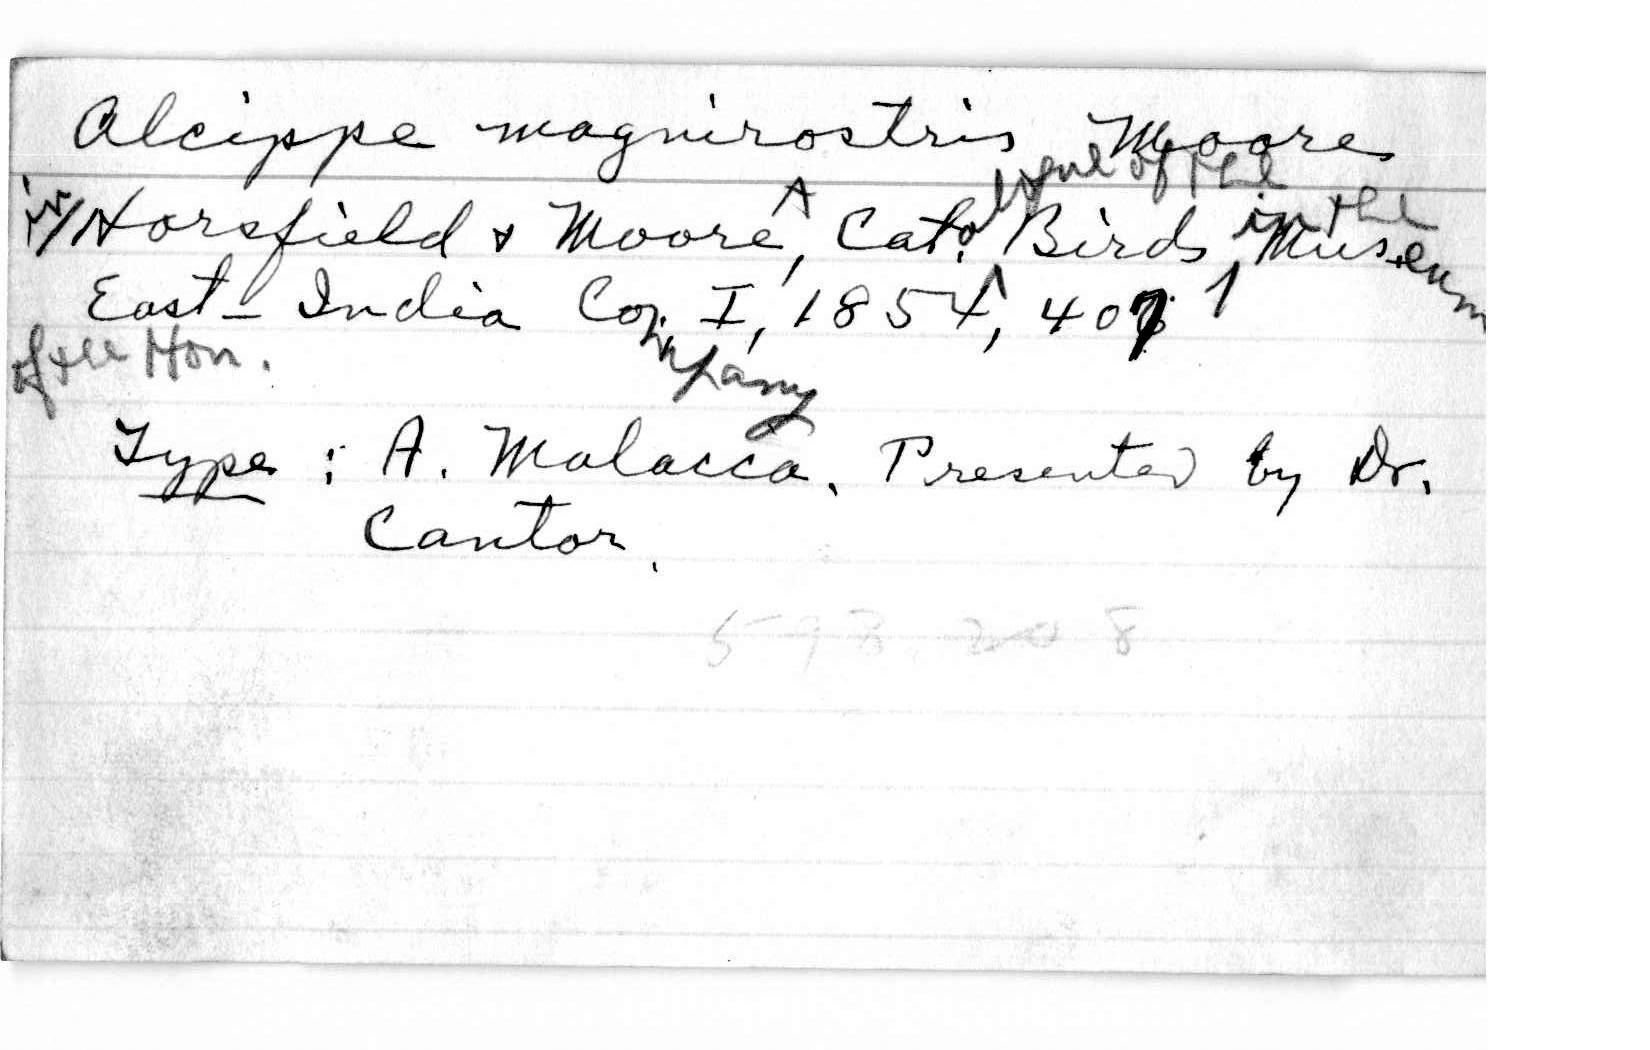 Alcippe magnirostris Moore
in/Horsfield & Moore, Catalogue of the Birds in the Museum
of the Hon. East-India Company I, 1854, 407
Type: A. Malacca. Presented by Dr.
Cantor.
598.208